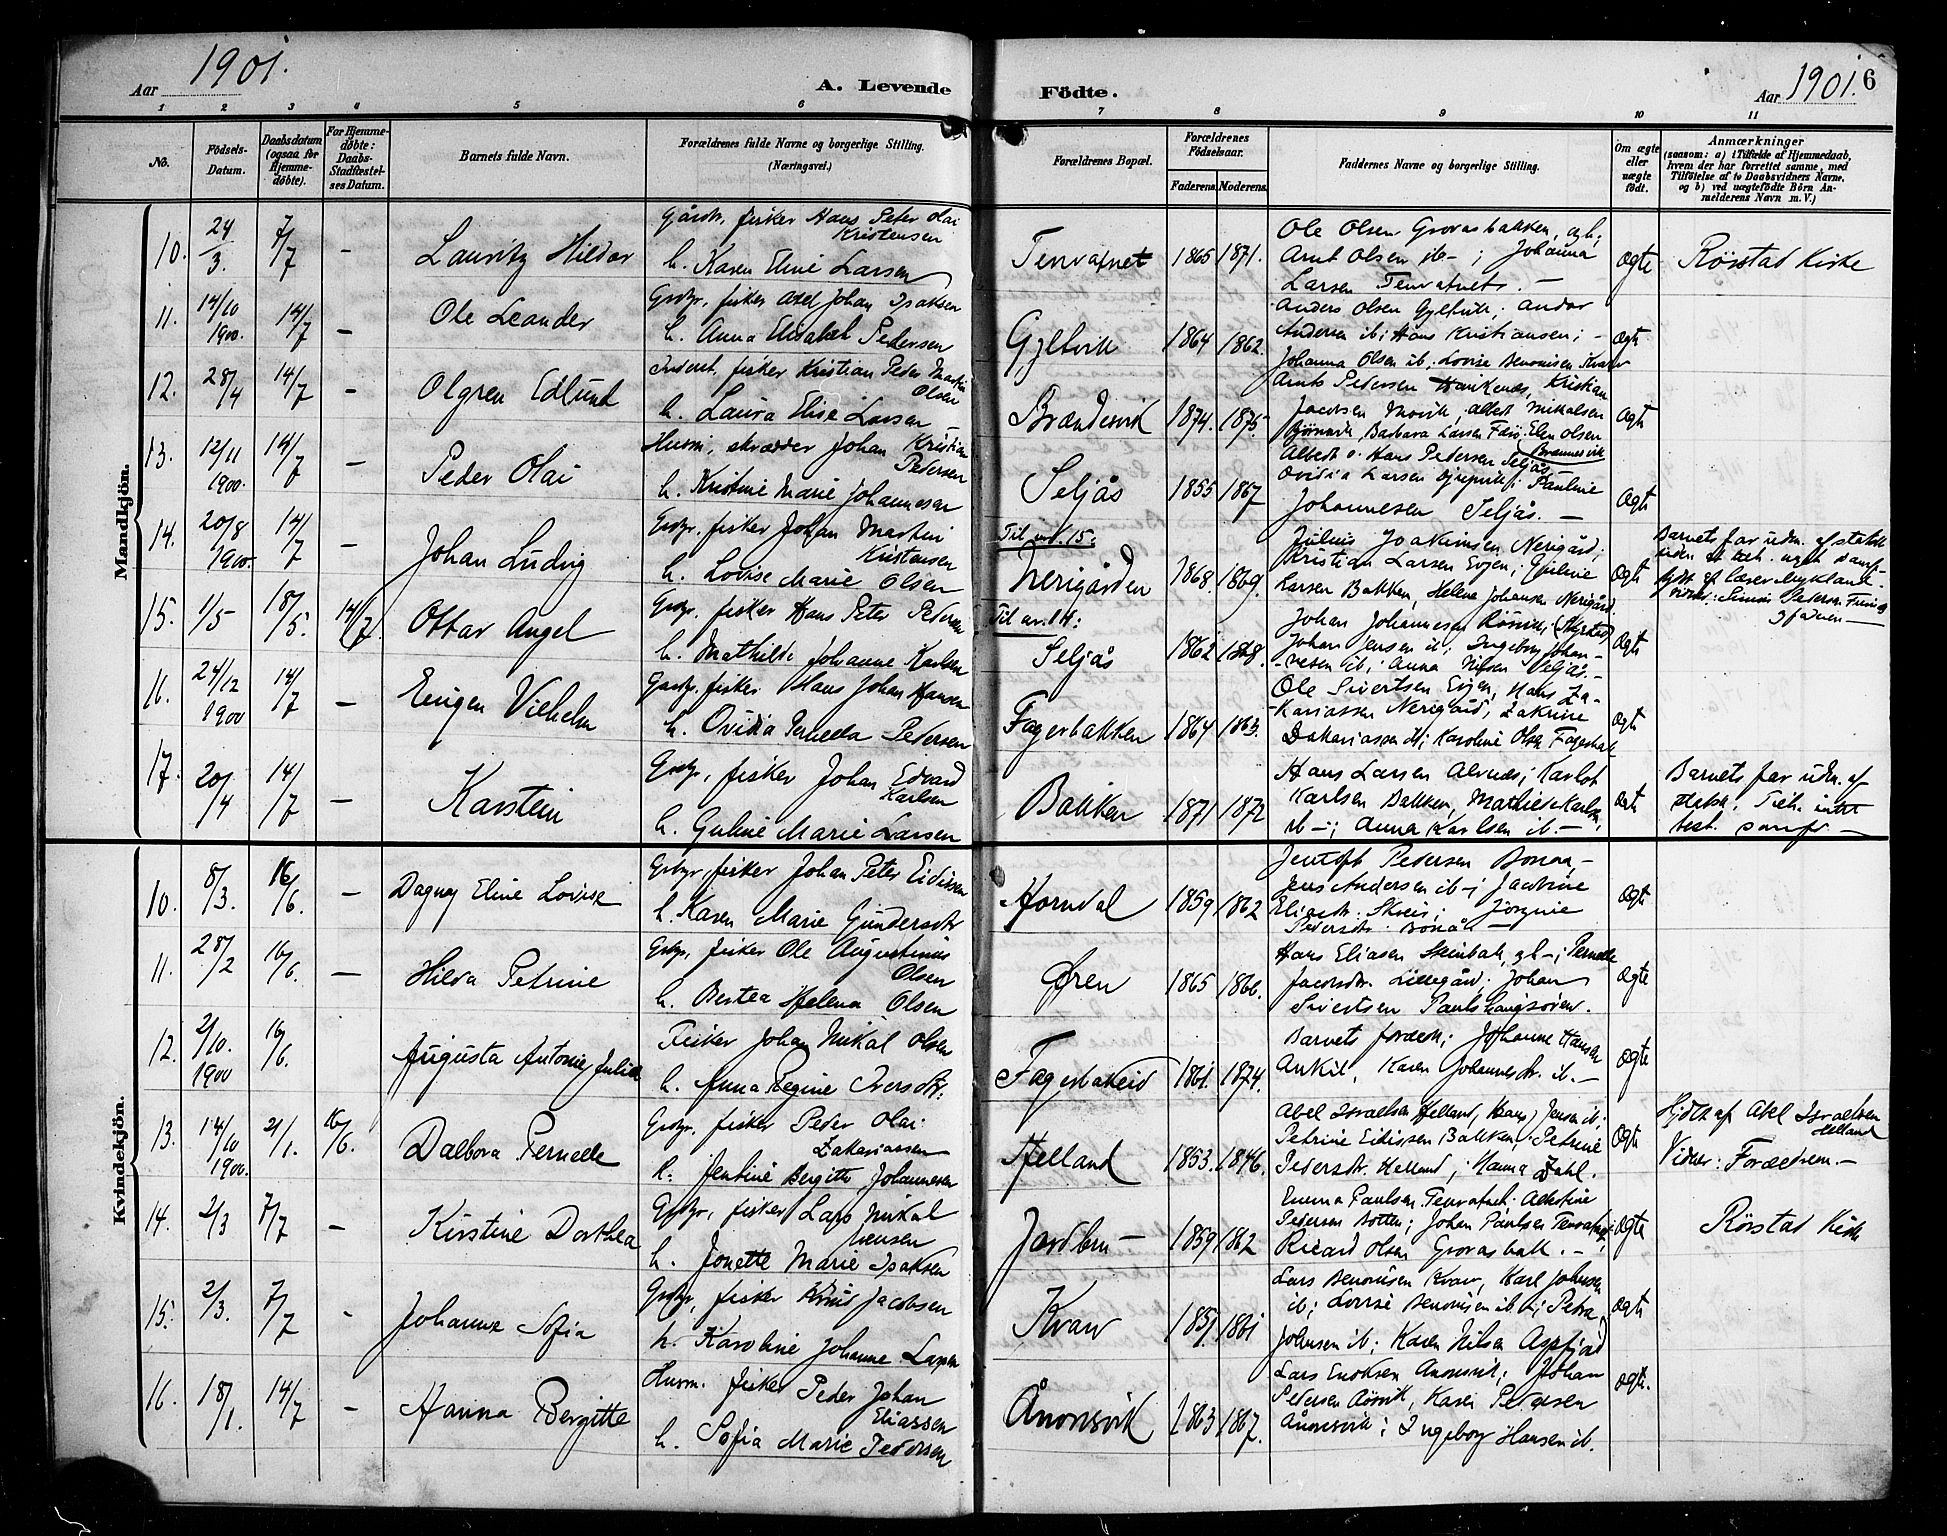 Aar 1901.
A. Levende
Födte.
Aar 1901. 6
1 2 3 4 5 6 7 8 9 10 11
No.
Födsels-Datum.
Daabsdatum (ogsaa for Hjemmedöbte).
For Hjemmedöbte: Daabs-Stadfæstelses Datum.
Barnets fulde Navn.
Forældrenes fulde Navne og borgerlige Stilling. (Næringsvei.)
Forældrenes Bopæl.
Forældrenes Födselsaar.
Faderens. Moderens.
Faddernes Navne og borgerlige Stilling.
Om ægte eller uægte födt.
Anmærkninger
(saasom: a) i Tilfælde af Hjemmedaab, hvem der har forrettet samme, med Tilföielse af to Daabsvidners Navne, og b) ved uægtefödte Börn Anmelderens Navn m. V.)
Mandkjön.
10. 24/3. 7/7 - Lauritz Hildor
Gårdbr, fisker Hans Peter Olai
Kristensen
h. Karen Eline Larsen
Tenvatnet 1865 1871.
Ole Olsen Grovasbakken,
Arnt Olsen ib - ; Johanna
Larsen Tenvatnet. -
ægte Rörstad Kirke
11. 14/10 1900. 14/7 - Ole Leander
Grdbr, fisker Axel Johan Isaksen
h. Anna Elisabet Pedersen
Gyltvik 1864 1862.
Anders Olsen Gyltvik; Andor
Andersen ib; Hans Kristiansen; -
Johanna Olsen ib. Lovise Benonisen Kvarv
ægte
12. 28/4 14/7 - Olgren Edlund
Inderst, fisker Kristian Peder Martin
Olsen
h. Laura Elise Larsen
Brændesvik 1874. 1875-
Arnts Pedersen Haukenæs, Kristian
Jacobsen Movik, Albert Mikalsen
Björnvik, Barbara Larsen Færö. Elen Olsen
Brænnesvik
ægte
13. 12/11 1900. 14/7 - Peder Olai
Husm, skrædder Johan Kristian
Pedersen
h. Kristine Marie Johannesen
Seljås 1855 1867
Albert o. Hans Pedersen Seljås
Ovidia Larsen; Pauline
Johannesen Seljås. -
ægte
14. 20/8 1900. 14/7 - Johan Ludvig
Grdbr. fisker Johan Martin
Kristensen
h. Lovise Marie Olsen
Til nr. 15:
Nerigården 1868. 1869.
Julius Joakimsen Nerigård;
Kristian Larsen Evjen; Guline
Larsen Bakken, Helene Johansen Nerigård.
ægte
Barnets far udm. af statsk
3 faddere -
15. 1/5 18/5. 14/7. Ottar Angel
Grdbr. fisker Hans Peter Pedersen
h. Mathilde Johanne Karlsen
Til nr. 14:
Seljås 1862 1868.
Johan Johannesen Rösvik,
Johan Jensen ib; Ingeborg Johan-
-nesen ib; Anna Nilsen Seljås. -
ægte
16. 24/12 1900 14/7 - Eugen Vilhelm
Grdbr. fisker Hans Johan Hansen
h. Ovidia Pernella Pedersen
Fagerbakken 1864 1863.
Ole Sivertsen Evjen, Hans Za-
-kariassen Nerigård, Zakrine
Zakariassen ib; Karoline Olsen Fagerbak
ægte
17. 20/4 14/7 - Karstein
Grdbr, fisker Johan Edvard
Karlsen
h. Guline Marie Larsen
Bakken 1871 1872
Hans Larsen Alvnes; Karlot
Karlsen Bakken, Mathilde Karlsen,
ib -; Anna Karlsen ib -
ægte
Barnets far udm. af
statsk.
Kvindekjön.
10. 8/3. 16/6. - Dagny Eline Lovise
Grdbr, fisker Johan Peter Eidissen
h. Karen Marie Gundersdtr
Horndal 1859 1862
Jentoft Pedersen Bonåa, -
Jens Andersen ib -; Jacobine
Eliasdtr. Skreis; Jörgine
Pedersdtr. Bonå -
ægte
11. 28/2 16/6. - Hilda Petrine
Grdbr, fisker Ole Augustinus
Olsen
h. Bertea Helena Olsen
Øren 1865 1866.
Hans Eliasen Steinbak, -; Pernelle
Jacobsdtr. Lillegård; Johan
Sivertsen Paulshaugsören.
ægte
12. 2/10. 1900 16/6. Augusta Antonie Julie
Fisker Johan Mikal Olsen
h. Anna Regine Iversdtr.
Fagerbakeid 1861. 1874.
Barnets foræld.; Johanne Hansen
Ankil, Karen Johannesdtr. ib. -
ægte
13. 14/10 1900. 21/1. 16/6. Dalbora Pernelle
Grdbr. fisker Peder Olai
Zakariassen
h. Jentine Bergitte Johannesen
Helland 1853. 1846.
Abel Israelsen Helland, Hans Jensen ib;
Petrine Eidissen Bakken; Petrine
Pedersdtr. Helland; Hanna Zahl.
ægte
Hjdbt. af Abel Israelsen
Helland
Vidner: Forældrene. -
14. 2/3 7/7 - Kirstine Dorthea
Grdbr, fisker Lars Mikal
Jensen
h. Jonette Marie Isaksen
Jordbru - 1859 1862
Emma Paulsen Tenvatnet. Albertine
Pedersen Botten; Johan Paulsen Tenvatnet;
Ricard Olsen Grovasbak. -
ægte Rörstad Kirke
15. 2/3. 7/7 - Johanna Sofia
Grdbr, fisker Knut Jacobsen
h. Karoline Johanne Larsen
Kvarv 1851 1861
Lars Benonisen Kvarv, Karl Johnsen
ib; Lovise Benonisen ib; Petra
Johnsen ib; Karen Nilsen Aspfjord
ægte
16. 18/1. 14/7 - Hanna Bergitte
Husm. fisker Peder Johan
Eliassen
h. Sofia Marie Pedersen
Ånonsvik 1863 1867.
Lars Enoksen Anonsvik; Johan
Pedersen Rösvik, Karen Petersen
Ånonsvik; Ingeborg Hansen ib.
ægte.